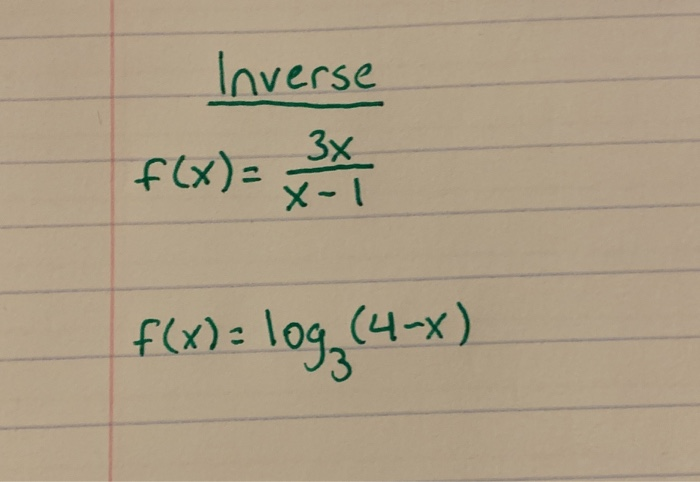 Inverse
f(x) = 3x / x - 1
f(x) = log₃(4-x)